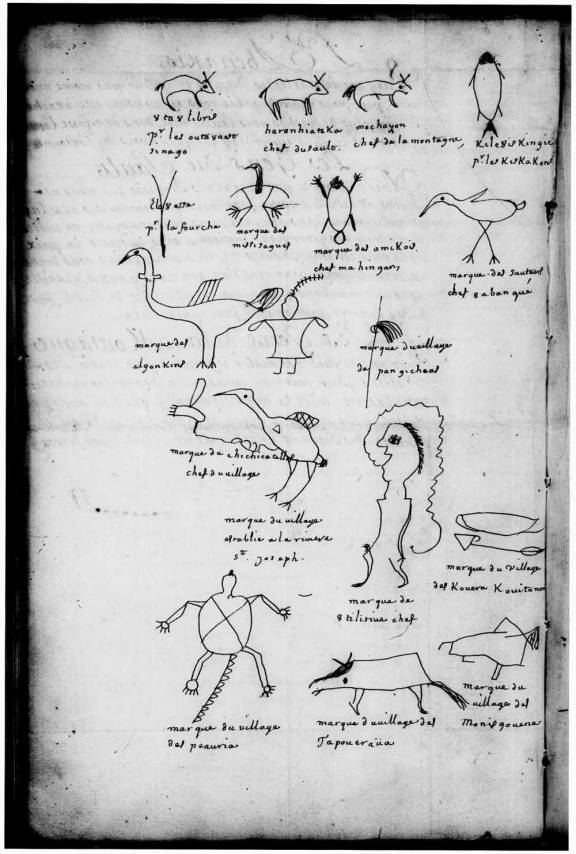 8ta8liбris
pr. les outa8aes
sinago
haronhiateka
chef du sault.
mechayon
chef de la montagne,
Kile8isKingie
pr. les KisKaKons
Ela8esse
pr. la fourche
marque des
missisagues
marque des amiKois.
chef mahingan,
marque des sauteurs
chef 8abangué
marque des
algonKins
marque du village
de pangicheas
marque de chichicatallo
chef du village
marque du village
establie a la riviere
St. Joseph.
marque de
8tilirine chef
marque du village
des Kouera Kouitanon
marque du village
des peauria
marque du village des
Tapoueraüa
marque du
village des
Monisgouena